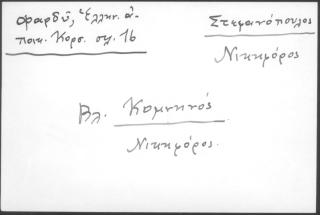 Φαρδῦ, Ἑλλην. ἀ-
ποικ. Κορσ. σελ. 16
Στεφανόπουλος
Νικηφόρος
Βλ. Κομνηνός
Νικηφόρος.